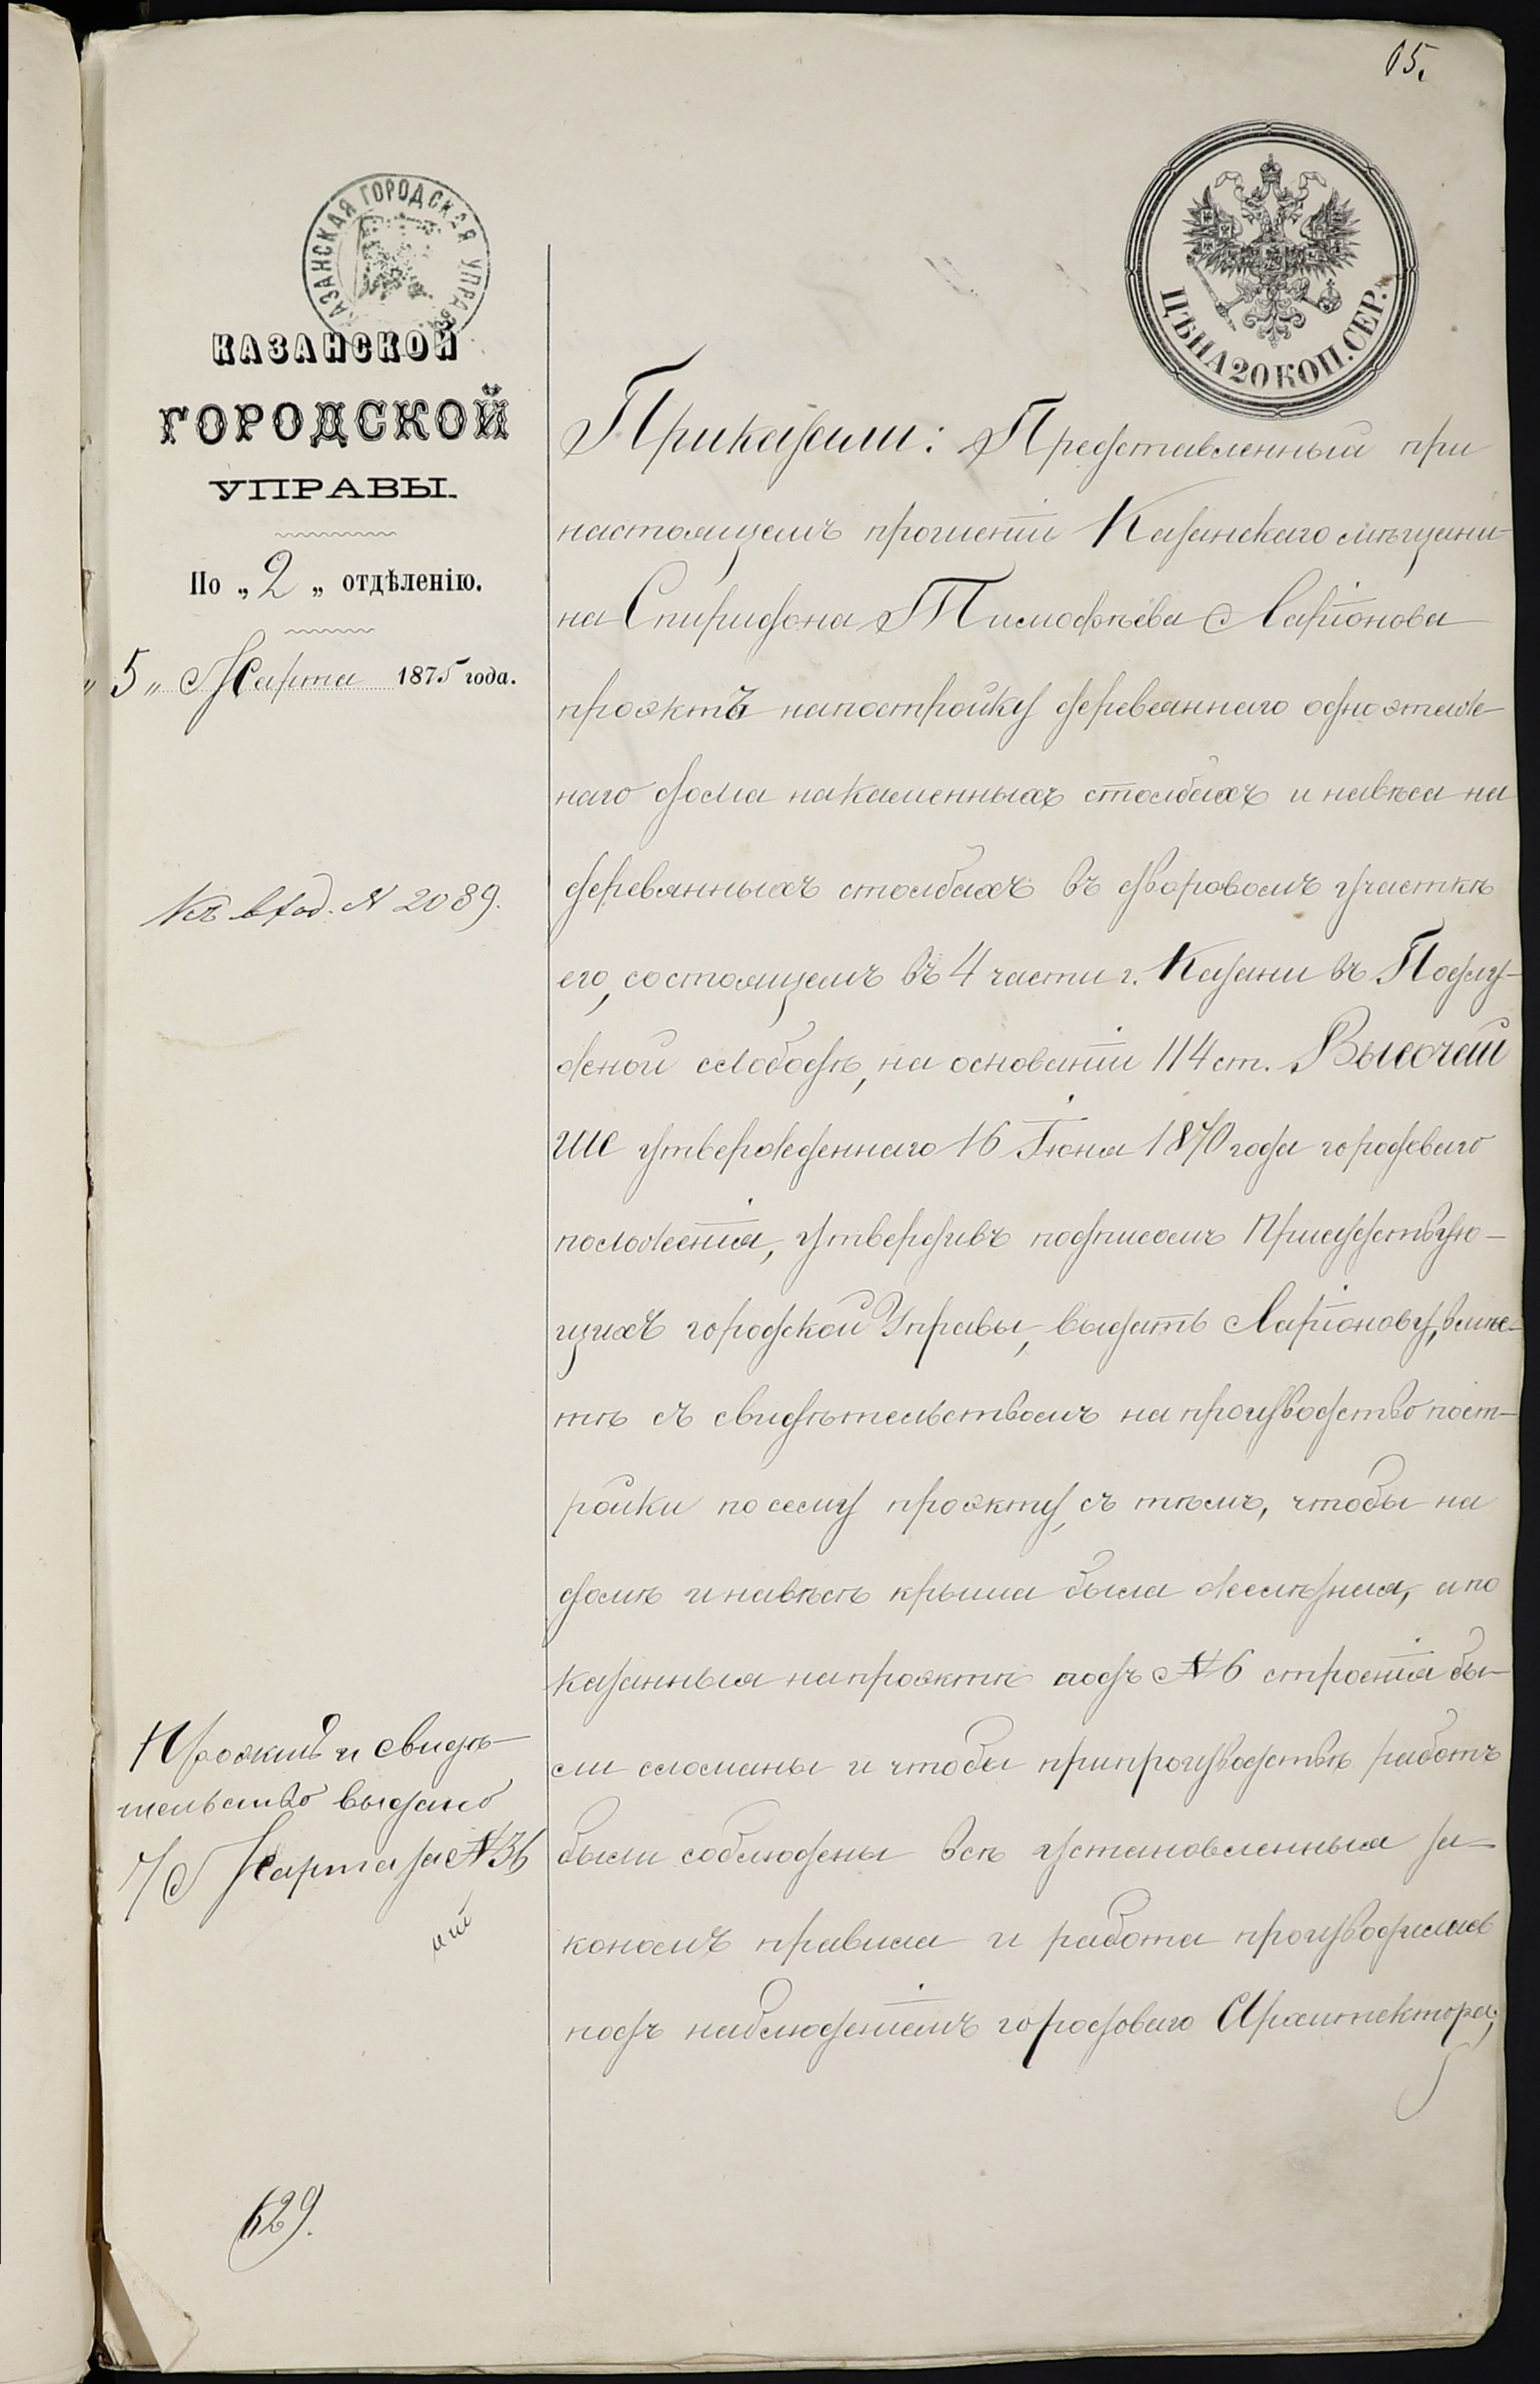 15.
КАЗАНСКАЯ ГОРОДСКАЯ УПРАВА
ЦѢНА 20 КОП. СЕР.
КАЗАНСКОЙ
ГОРОДСКОЙ
УПРАВЫ.
По „2„ отдѣленію.
„5„ Марта 1875 года.
Къ вход. № 2089.
Проэктъ и свидѣ-
тельство выдано
Марта за № 36
629.
Приказали: Представленный при
настоящемъ прошеніи Казанскаго мѣщани-
на Спиридона Тимофѣева Ларіонова
проэктъ на постройку деревяннаго одноэтаж-
наго дома на каменныхъ столбахъ и навѣса на
деревянныхъ столбахъ въ дворовомъ участкѣ
его, состоящемъ въ 4 части г. Казани въ Подлу-
жной слободѣ, на основаніи 114 ст. Высочай
ше утвержденнаго 16 Іюня 1870 года городоваго
положенія, утвердивъ подписомъ Присудствую-
щихъ городской Управы, выдать Ларіонову, вмѣс-
тѣ съ свидѣтельствомъ на производство пост-
ройки по сему проэкту, съ тѣмъ, чтобы на
домѣ и навѣсѣ крыша была желѣзная, а по
казанныя на проэктѣ подъ № 6 строенія бы-
ли сломаны и чтобы при производствѣ работъ
были соблюдены всѣ установленныя за-
кономъ правила и работа производилась
подъ наблюденіемъ городоваго Архитектора;